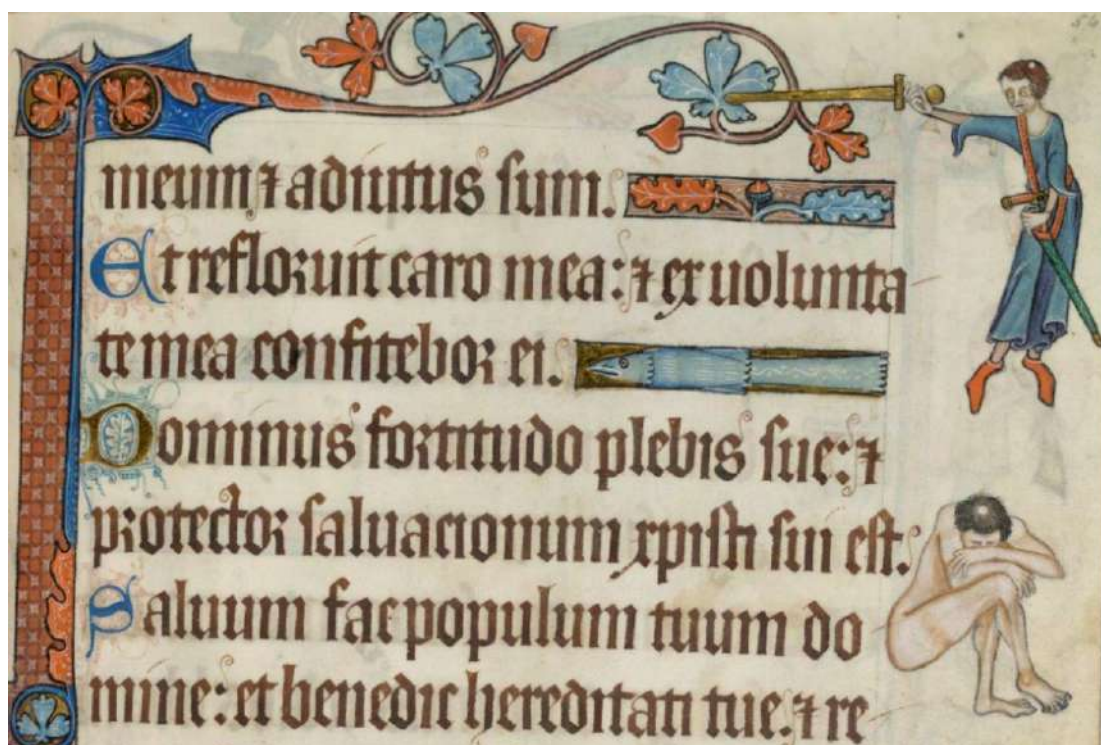 meum ⁊ adiutus sum.
Et refloruit caro mea: ⁊ ex uolunta
te mea confitebor ei.
Dominus fortitudo plebis sue: ⁊
protector saluacionum xpisti sui est.
Saluum fac populum tuum do
mine: et benedic hereditati tue. ⁊ re